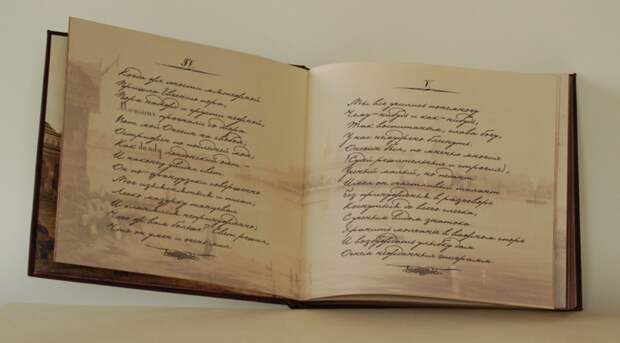 IV
Когда же юности мятежной
Пришла Евгению пора,
Пора надежд и грусти нежной,
Monsieur прогнали со двора.
Вот мой Онегин на свободе;
Острижен по последней моде;
Как dandy лондонский одет –
И наконец увидел свет.
Он по-французски совершенно
Мог изъясняться и писал;
Легко мазурку танцевал
И кланялся непринужденно;
Чего ж вам больше? Свет решил,
Что он умен и очень мил.
V
Мы все учились понемногу
Чему-нибудь и как-нибудь,
Так воспитаньем, слава богу,
У нас немудрено блеснуть.
Онегин был, по мненью многих
(Судей решительных и строгих),
Ученый малый, но педант.
Имел он счастливый талант
Без принужденья в разговоре
Коснуться до всего слегка,
С ученым видом знатока
Хранить молчанье в важном споре
И возбуждать улыбку дам
Огнем нежданных эпиграмм.